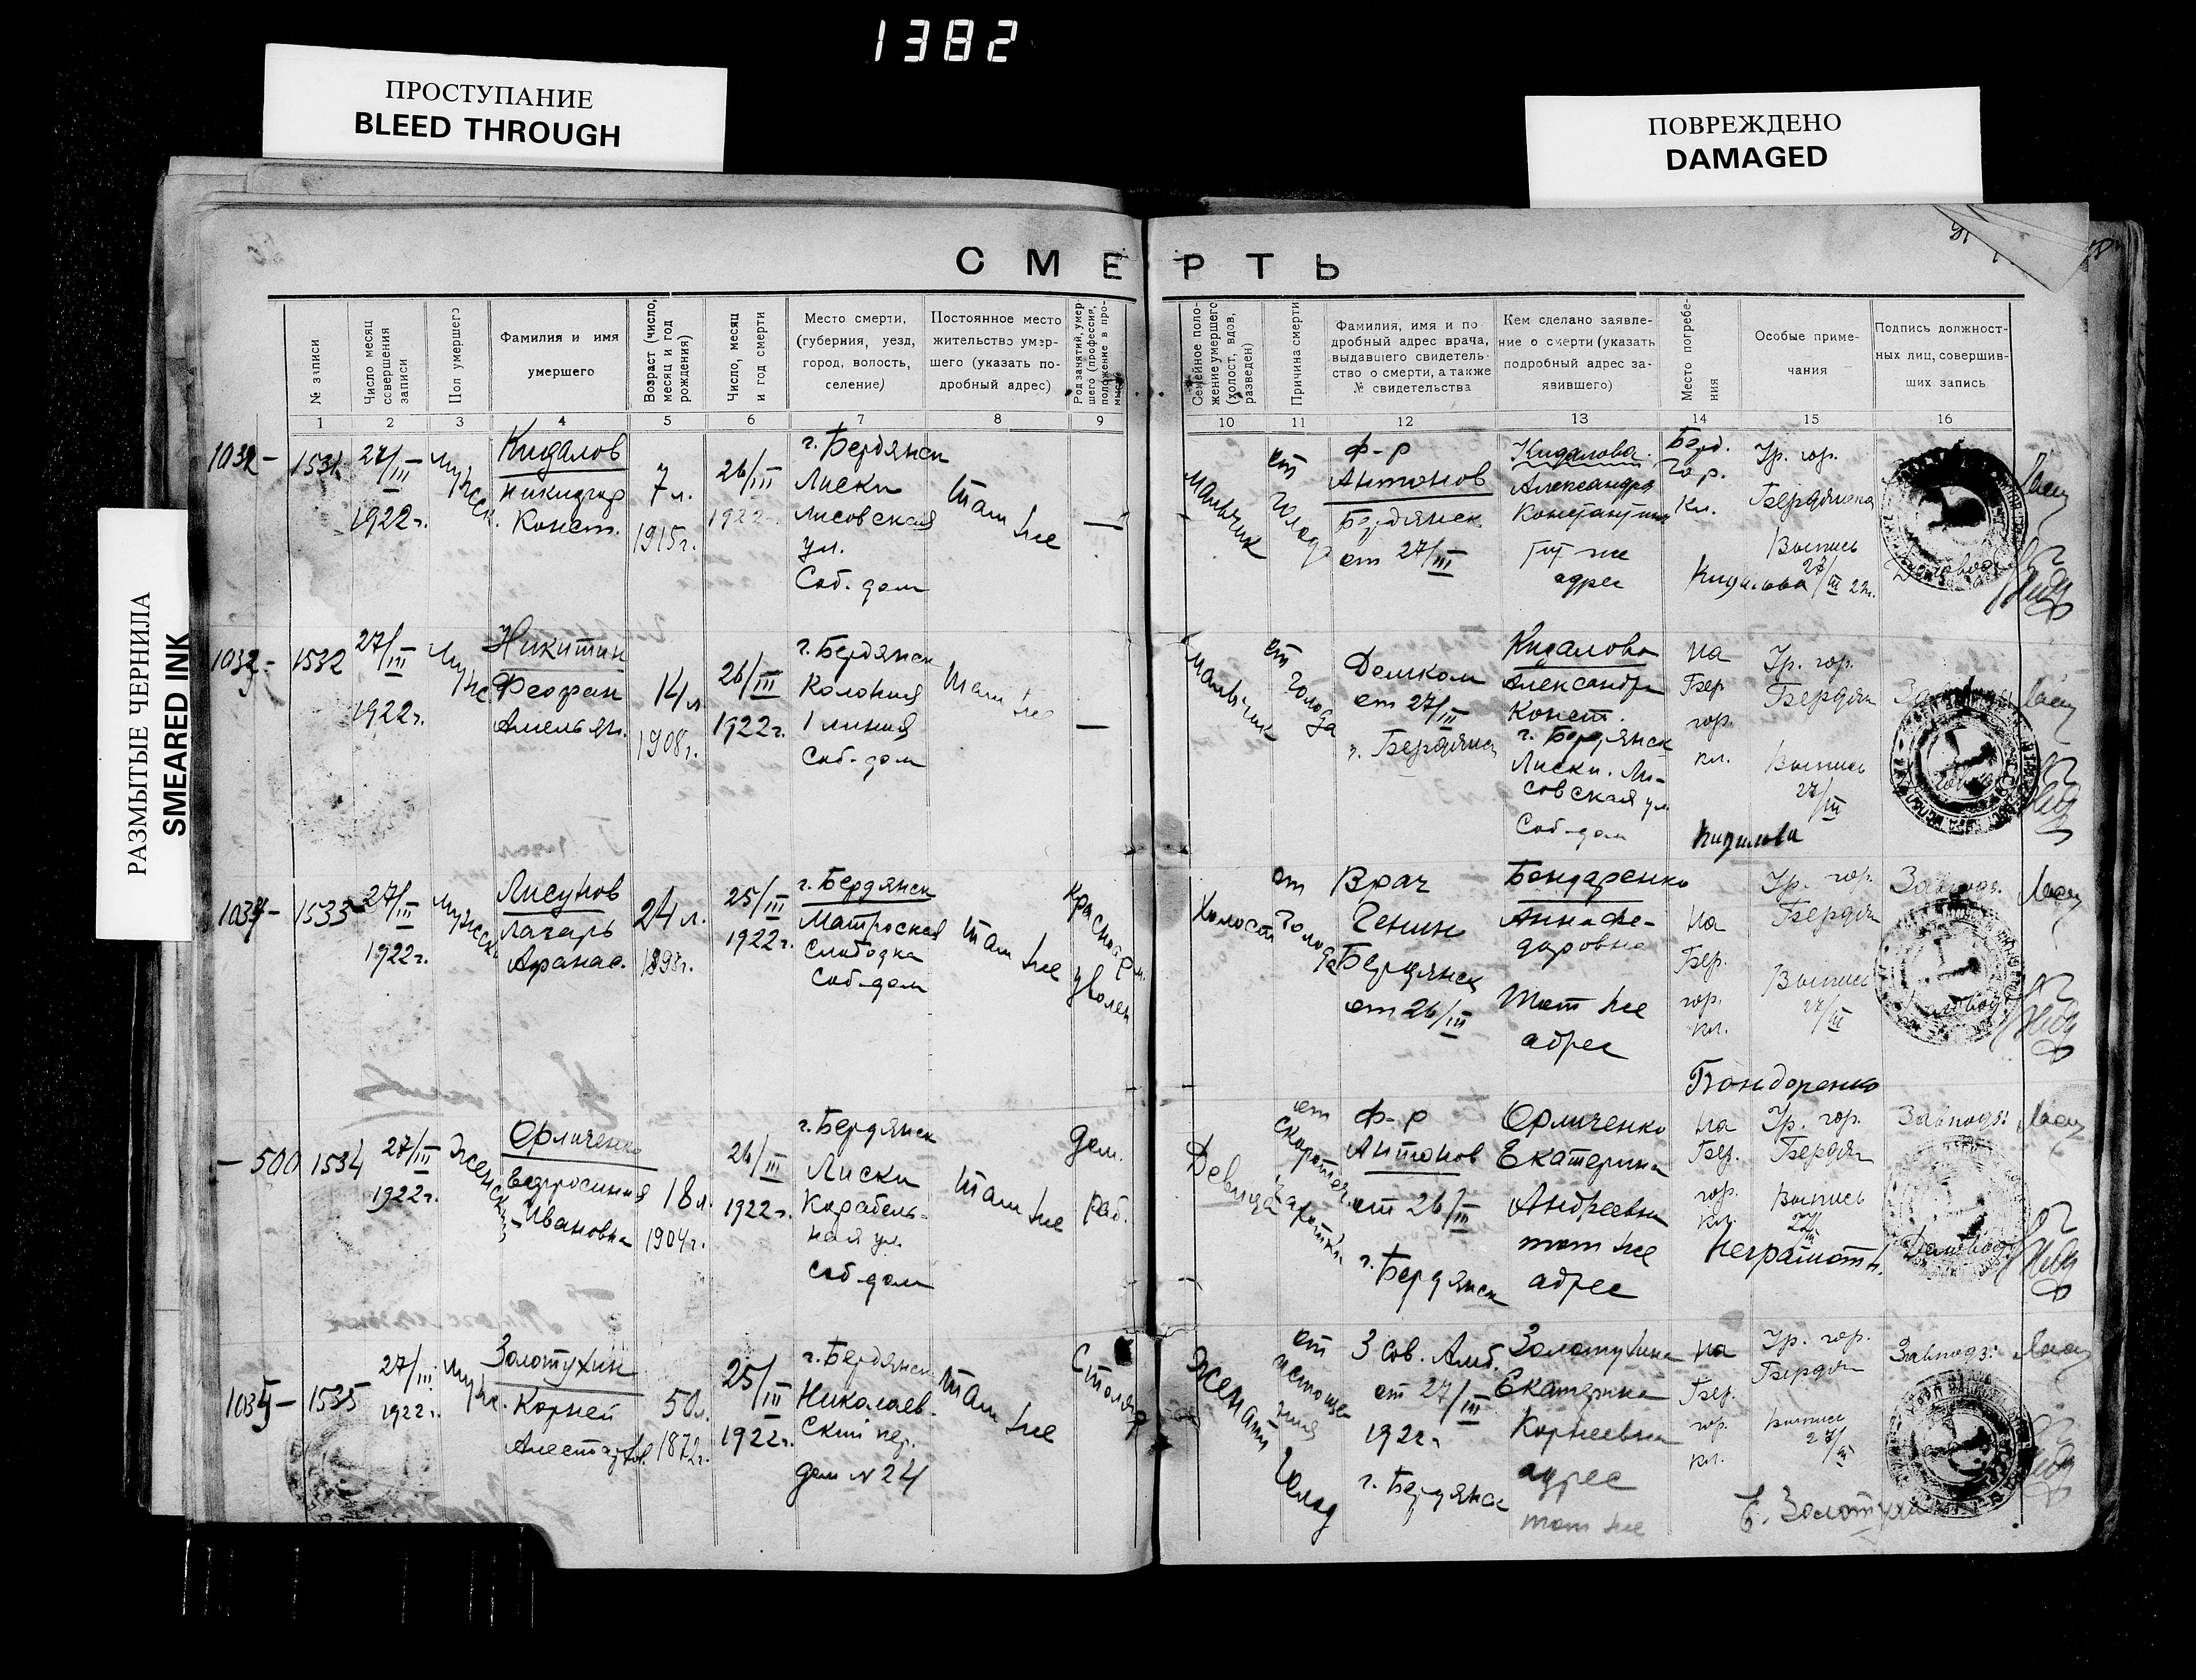 1382
ПРОСТУПАНИЕ
BLEED THROUGH
ПОВРЕЖДЕНО
DAMAGED
РАЗМЫТЫЕ ЧЕРНИЛА
SMEARED INK
СМЕРТЬ
№ записи
Число месяц совершения записи
Пол умершего
Фамилия и имя умершего
Возраст (число, месяц и год рождения)
Число, месяц и год смерти
Место смерти, (губерния, уезд, город, волость, селение)
Постоянное место жительство умершего (указать подробный адрес)
Род занятий, умершего (профессия, положение в промысле
Семейное положение умершего (холост, вдов, разведен)
Причина смерти
Фамилия, имя и подробный адрес врача, выдавшего свидетельство о смерти, а также № свидетельства
Кем сделано заявление о смерти (указать подробный адрес заявившего)
Место погребения
Особые примечания
Подпись должностных лиц, совершивших запись
1 2 3 4 5 6 7 8 9 10 11 12 13 14 15 16
1531
27/III
1922г.
Мужск.
Кидалов
Никифор
Конст.
7 л.
1915г.
26/III
1922
г. Бердянск
Лиски
Лисовская
ул.
Соб. дом
Там же
—
Мальчик
от голода
Ф-р
Антонов
Бердянск
от 27/III
Кидалова
Александра
Константин
Тут же
адрес
Берд.
гор.
кл.
Гр. гор.
Бердянска
Выпись
27/III 22г.
Кидалова
Деловод
1532
27/III
1922г.
Муж
Никитин
Феофан
Амельян.
14 л
1908г.
26/III
1922г.
г. Бердянск
Колония
1 линия
Соб. дом
Там же
—
Мальчик
от голода
Домком
от 27/III
г. Бердянск
Кидалова
Александра
Конст.
г. Бердянск
Лиски. Ли-
совская ул
Соб. дом
на
Бер
гор.
кл.
Гр. гор.
Бердян
Выпись
27/III
Кидалова
1034 -
1533
27/III
1922г.
Мужск
Лисунов
Лазарь
Афанас.
24 л.
1898г.
25/III
1922г.
г. Бердянск
Матроская
Слободка
Соб. дом
Там же
Красноарм.
уволен
Холост
от голода
Врач
Генин
Бердянск
от 26/III
Бондаренко
Анна Фе-
доровна
Тот же
адрес
на
Бер.
гор.
кл.
Гр. гор.
Бердян
Выпись
27/III
Бондоренко
- 500
1534
27/III
1922г.
Женский
Орличенко
Евфросиния
Ивановна
18 л.
1904г.
26/III
1922г.
г. Бердянск
Лиски
Корабель-
ная ул.
Соб. дом
Там же
Дом.
раб.
Девица
от
Ф-р
Антонов
от 26/III
г. Бердянск
Орличенко
Екатерина
Андреевна
тот же
адрес
на
Бер.
гор.
кл.
Гр. гор.
Бердян
Выпись
Неграмотн.
Деловод
1035 -
1535
27/III
1922г.
Муж.
Золотухин
Корней
50 л.
1872г.
25/III
1922г.
г. Бердянск
Николаев-
ский пер.
дом № 24
Там же
Столяр
Женатый
от истощения
голод
3 Сов. Амб.
от 27/III
1922
г. Бердянск
Золотухина
Екатерина
Корнеевна
адрес
тот же
на
Бер.
гор.
кл.
Гр. гор.
Бердян
Выпись
27/III
Е. Золотухина